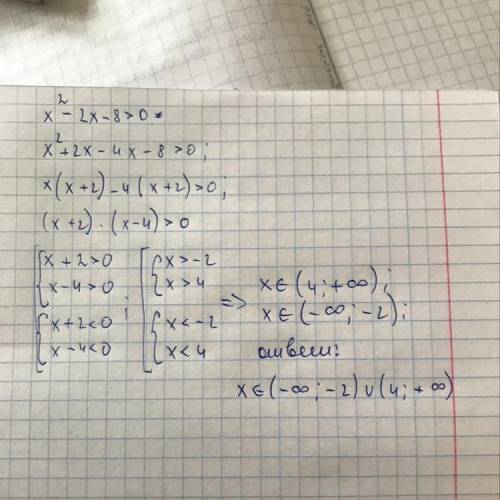 x² - 2x - 8 > 0
x² + 2x - 4x - 8 > 0;
x(x+2) - 4(x+2) > 0;
(x+2) · (x-4) > 0
[{x + 2 > 0
x - 4 > 0
{x + 2 < 0
x - 4 < 0;
[{x > -2
x > 4
{x < -2
x < 4
=> x ∈ (4; +∞);
x ∈ (-∞; -2);
ответ:
x ∈ (-∞; -2) ∪ (4; +∞)